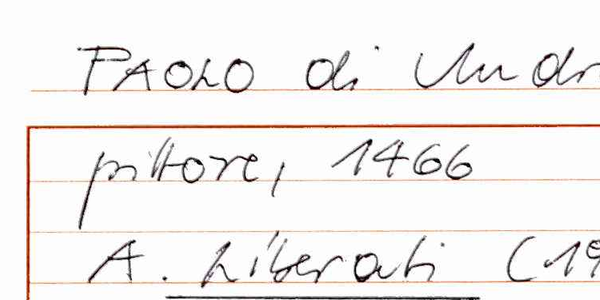 PAOLO di
pittore, 1466
A. Liberati (19